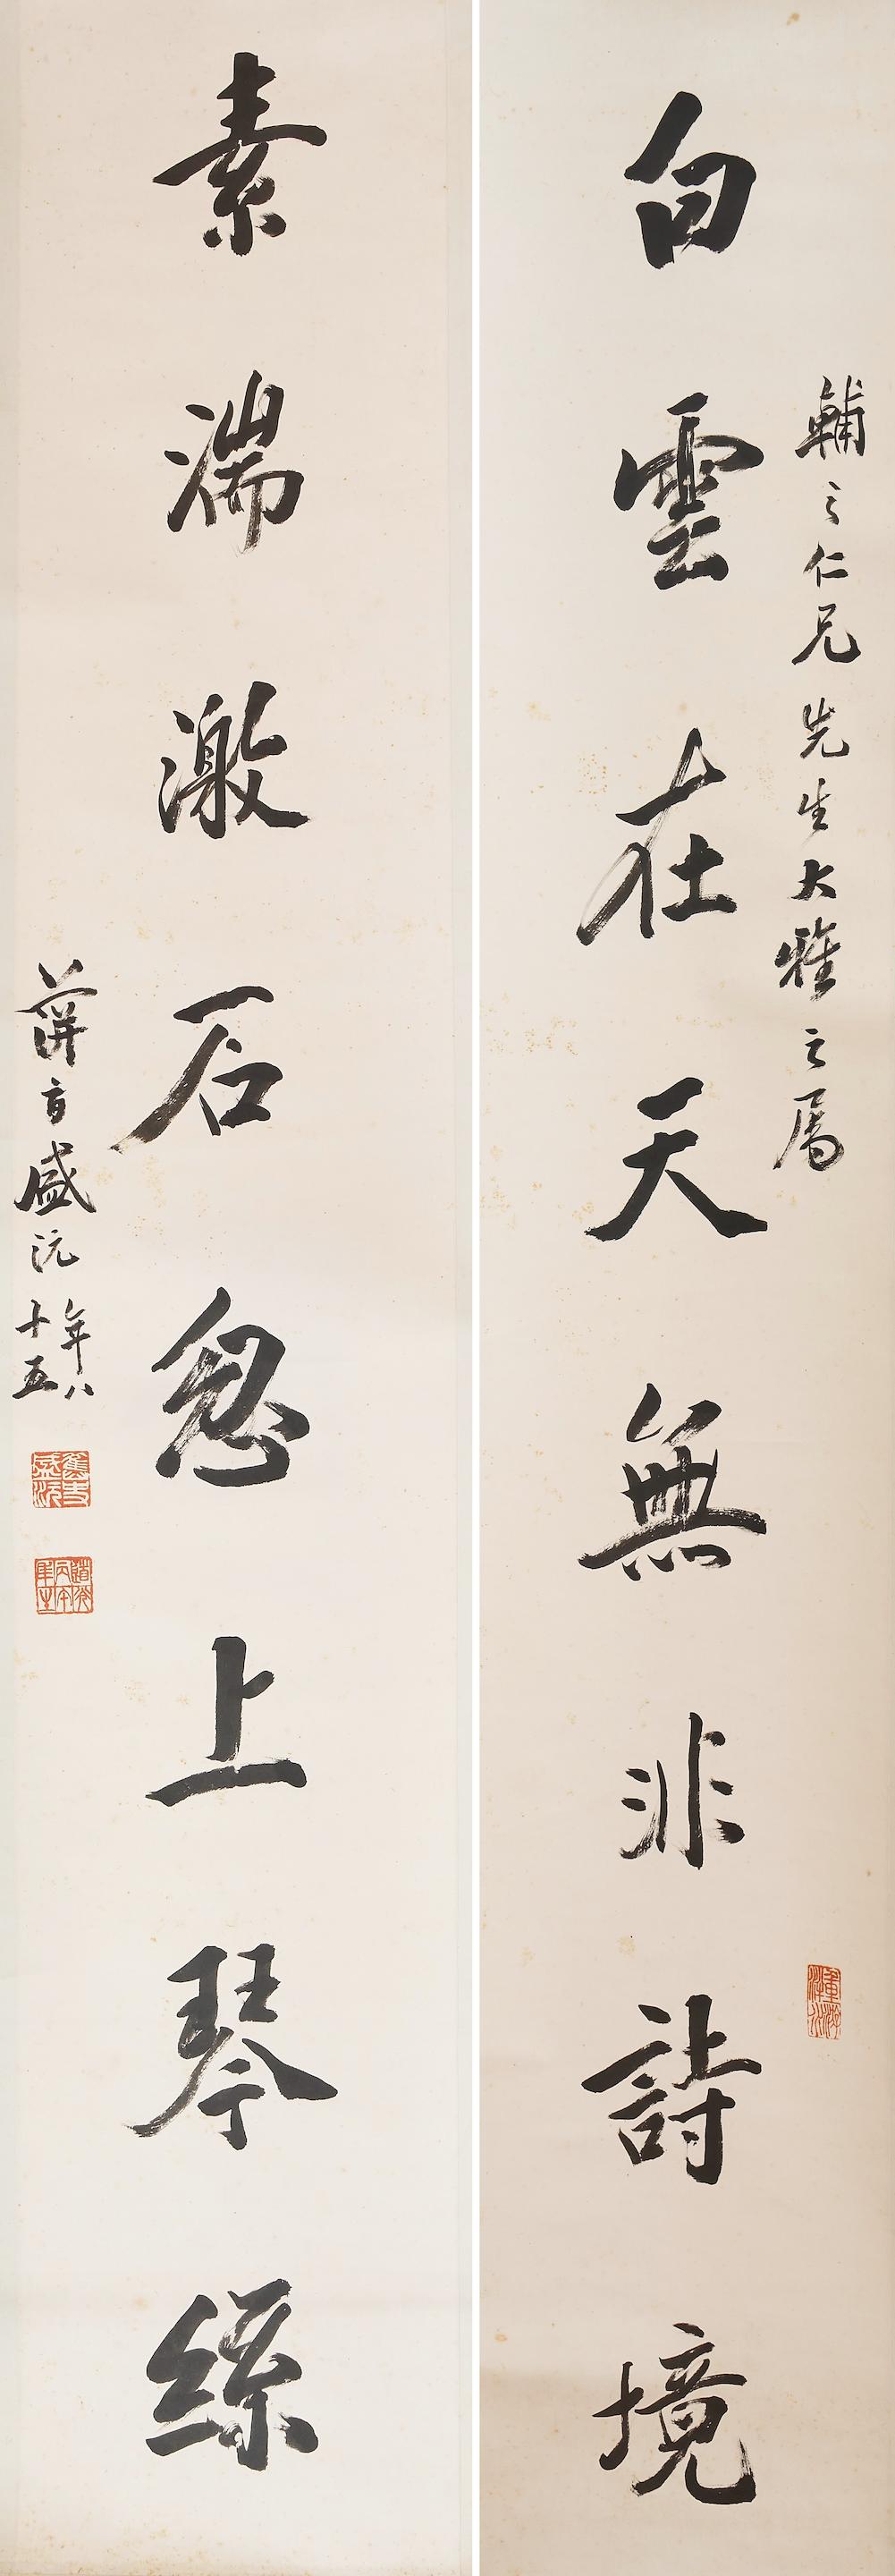 輔之仁兄先生大雅之屬
白雲在天無非詩境
素湍激石忽上琴絲
萍旨盛沅年八十五